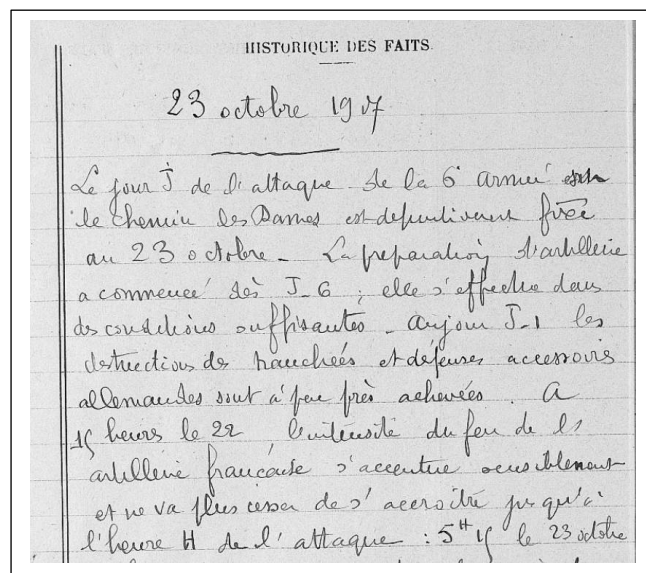 HISTORIQUE DES FAITS.
23 octobre 1917
Le jour J de l'attaque de la 6e armée
le chemin des Dames est définitivement fixée
au 23 octobre. La préparation d'artillerie
a commencé dès J-6 ; elle s'effectue dans
des conditions suffisantes. au jour J-1 les
destructions des tranchées et défenses accessoires
allemandes sont à peu près achevées. A
15 heures le 22 l'intensité du feu de l'
artillerie française s'accentue sensiblement
et ne va plus cesser de s'accroître jusqu'à
l'heure H de l'attaque : 5H15 le 23 octobre